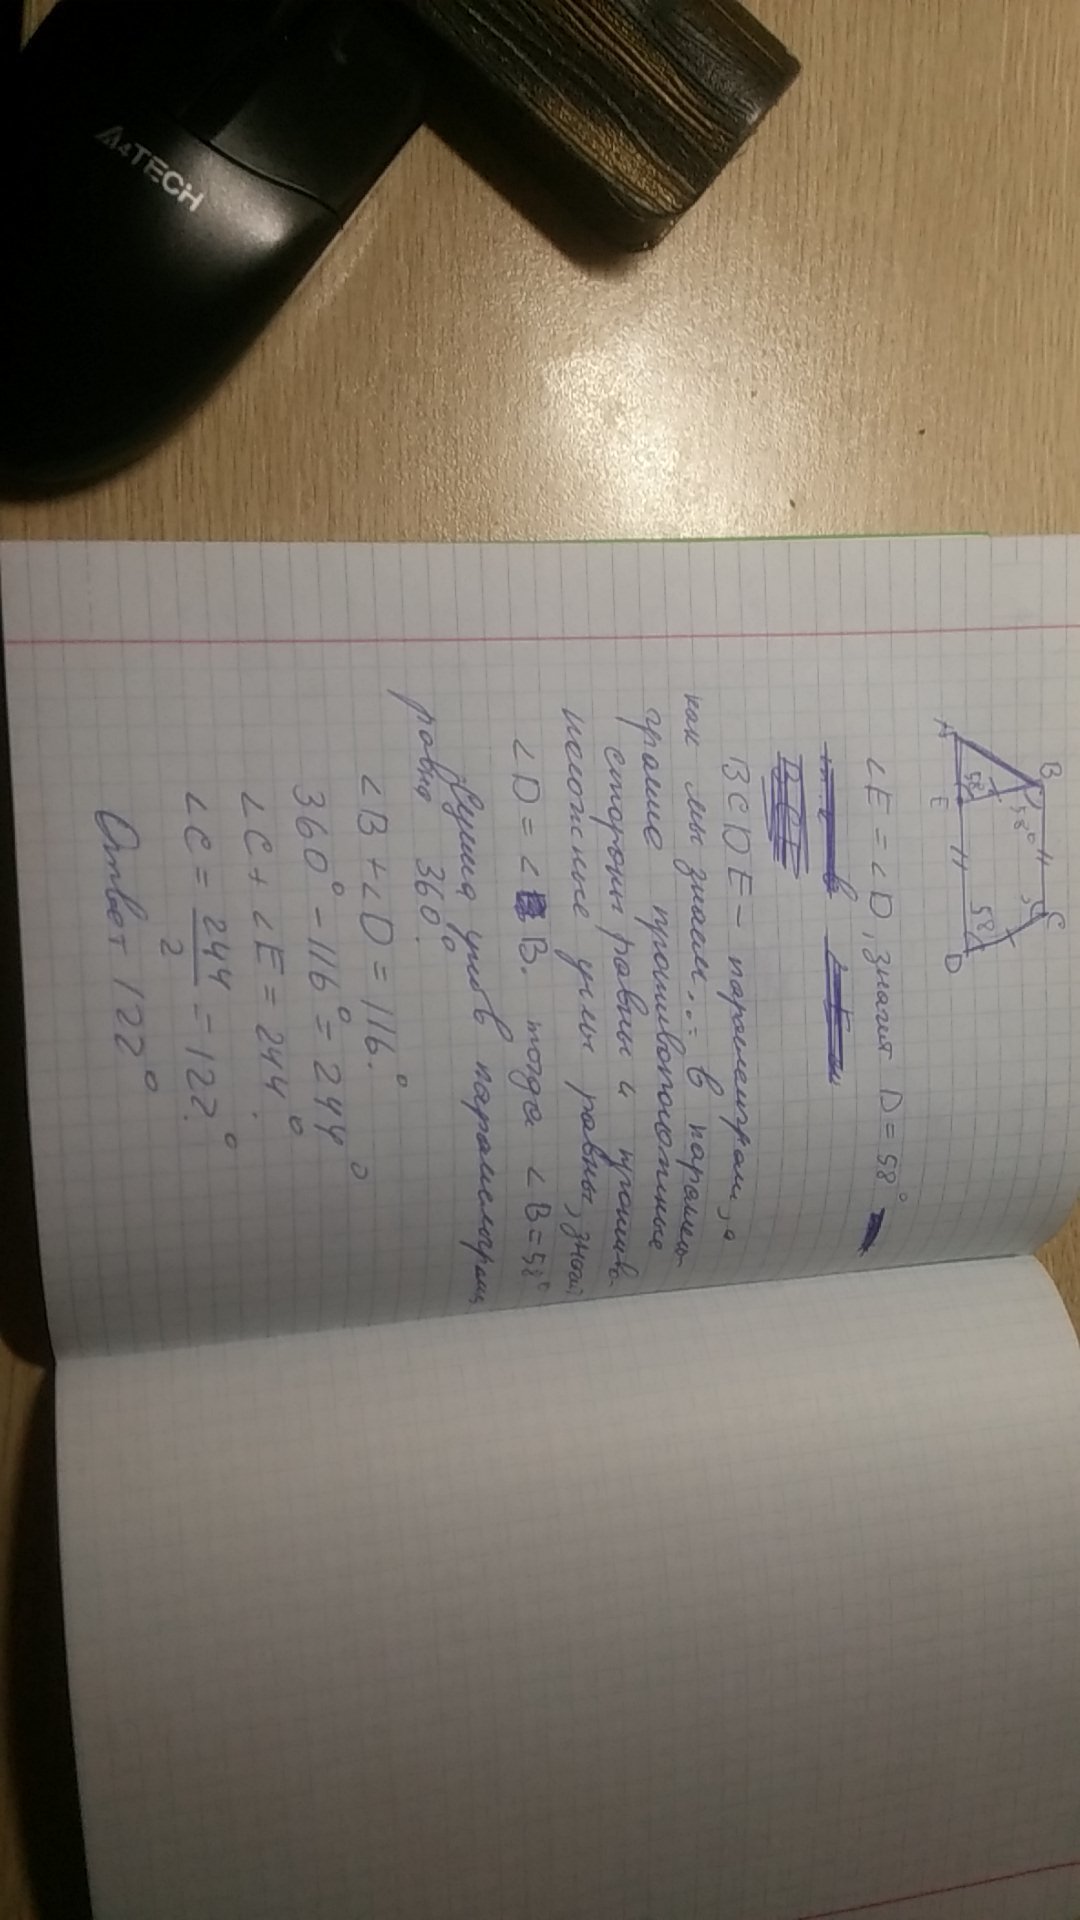 A4TECH
B C
A E D
58° 58° 58
∠E = ∠D, значит D = 58°
BCDE - параллелограм, а
как мы знаем... в паралле-
грамме противоположные
стороны равны и противо
положные углы равны, значит
∠D = ∠B. тогда ∠B = 58°
Сумма углов в параллелограмме
равна 360°.
∠B + ∠D = 116°.
360° - 116° = 244°
∠C + ∠E = 244°.
∠C = 244/2 = 122°.
Ответ 122°